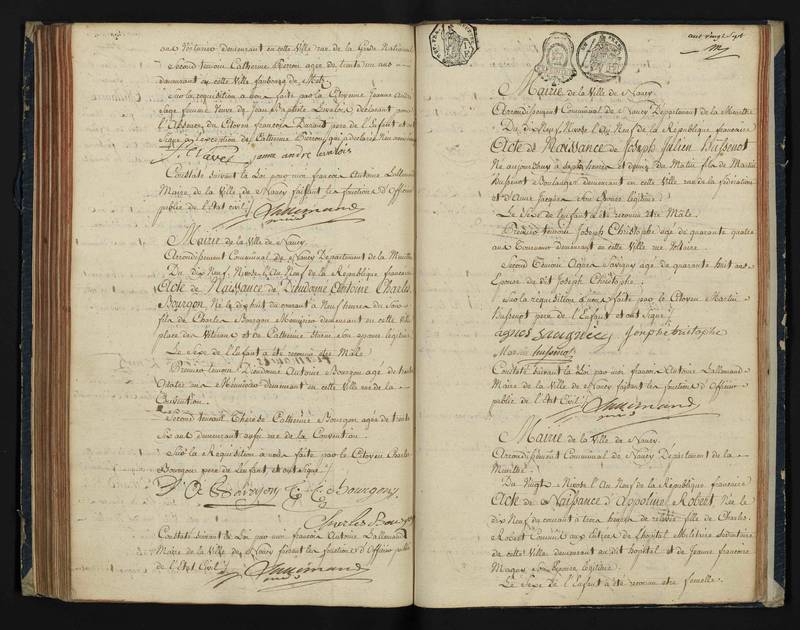 ans Notaires demeurant en cette Ville rue de la Garde National
Second témoin Catherine Pierron agée de trente six ans
demeurant en cette Ville faubourg de Metz
Sur la requisition a nous faite par la Citoyenne Jeanne André
sage femme Veuve de Jean Baptiste Levalois declarant pour
l'Absence du Citoyen francois Durant pere de l'Enfant et ont
Signé a l'exception de Catherine Pierron qui a déclaré
jeanne andre levalois
Constaté suivant la Loi par moi francois Antoine Lallemand
Maire de la Ville de Nancy faisant les fonctions d'Officier
public de l'Etat civil
Lallemand
Mairie de la Ville de Nancy
Arrondissement Communal de Nancy Département de la Meurthe
Du dix Neuf Nivose l'An Neuf de la République francaise
Acte de Naissance de Dieudonné Antoine Charles
Bourgon, Né le dix huit du courant à Neuf heures du Soir
fils de Charles Bourgon Menuisier demeurant en cette Ville
place des Vétérans et de Catherine son epouse légitime
Le Sexe de l'Enfant a été reconnu être Male
Premier temoin Dieudonné Antoine Bourgon agé de trente
quatre ans Menuisier demeurant en cette Ville rue de la
Convention
Second temoin Thérèse Catherine Bourgon agée de trente
Six ans demeurant aussi rue de la Convention
Sur la Requisition a nous faite par le Citoyen Charles
Bourgon pere de l'enfant, et ont Signé
D A Bourgon T. C. bourgon
Charles Bourgon
Constaté suivant la Loi par moi francois Antoine Lallemand
Maire de la Ville de Nancy faisant les fonctions d'Officier public
de l'Etat Civil
Lallemand
cent vingt Sept
Mairie de la Ville de Nancy
Arrondissement Communal de Nancy Département de la Meurthe
Du dix Neuf Nivose l'An Neuf de la République francaise
Acte de Naissance de Joseph Julien Bussenot
Né aujourdhuy à sept heures du Matin fils de Martin
Bussenot Boulanger demeurant en cette Ville rue de la Fédération
et d'Anne Jacques Son Epouse légitime
Le Sexe de l'enfant a été reconnu être Male
Premier temoin Joseph Christophe agé de quarante quatre
ans Tourneur demeurant en cette Ville rue Voltaire
Second Temoin Agnès Savigny agée de quarante huit ans
Epouse du dit Joseph Christophe
Sur la requisition à nous faite par le Citoyen Martin
Bussenot pere de l'Enfant et ont Signé
agnes Sauvgnier Joseph christophe
Martin bussenot
Constaté suivant la Loi par moi francois Antoine Lallemand
Maire de la Ville de Nancy faisant les fonctions d'Officier
public de l'Etat Civil
Lallemand
Mairie de la Ville de Nancy
Arrondissement Communal de Nancy Département de la
Meurthe
Du Vingt Nivose l'An Neuf de la République francaise
Acte de Naissance d'Appoline Robert Née le
dix Neuf du courant à trois heures de relevée fille de Charles
Robert Commis aux entrées de l'hopital Militaire Sédentaire
de cette Ville demeurant au dit hopital et de Jeanne francoise
Magny son Epouse légitime
Le Sexe de l'Enfant a été reconnu etre femelle